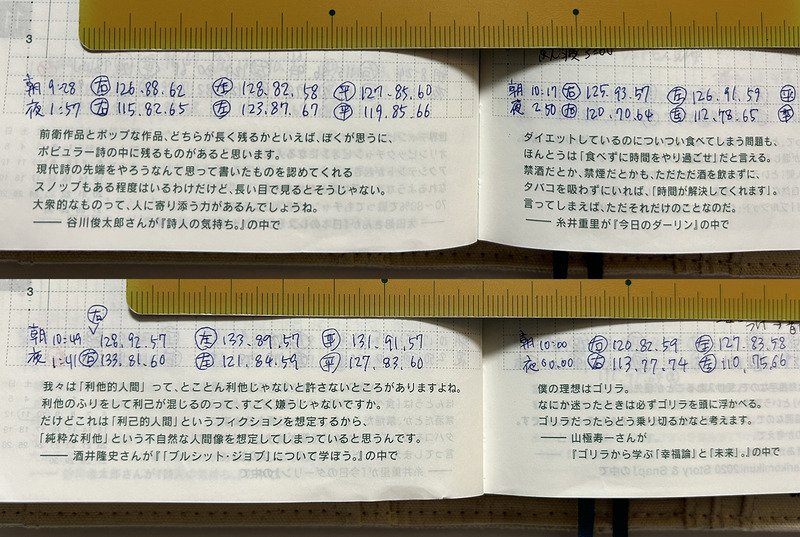 3
朝 9:28 右 126.88.62 左 128.82.58 平 127.85.60
夜 1:57 右 115.82.65 左 123.87.67 平 119.85.66
前衛作品とポップな作品、どちらが長く残るかといえば、ぼくが思うに、
ポピュラー詩の中に残るものがあると思います。
現代詩の先端をやろうなんて思って書いたものを認めてくれる
スノッブもある程度はいるわけだけど、長い目で見るとそうじゃない。
大衆的なものって、人に寄り添う力があるんでしょうね。
—— 谷川俊太郎さんが『詩人の気持ち。』の中で
朝 10:17 右 125.93.57 左 126.91.59 平
夜 2:50 右 120.70.64 左 112.78.65 平
ダイエットしているのについつい食べてしまう問題も、
ほんとうは「食べずに時間をやり過ごせ」だと言える。
禁酒だとか、禁煙だとかも、ただただ酒を飲まずに、
タバコを吸わずにいれば、「時間が解決してくれます」。
言ってしまえば、ただそれだけのことなのだ。
—— 糸井重里が『今日のダーリン』の中で
3
右
朝 10:49 128.92.57 左 133.89.57 平 131.91.57
夜 1:41 右 133.81.60 左 121.84.59 平 127.83.60
我々は「利他的人間」って、とことん利他じゃないと許さないところがありますよね。
利他のふりをして利己が混じるのって、すごく嫌うじゃないですか。
だけどこれは「利己的人間」というフィクションを想定するから、
「純粋な利他」という不自然な人間像を想定してしまっていると思うんです。
—— 酒井隆史さんが『「ブルシット・ジョブ」について学ぼう。』の中で
朝 10:00 右 120.82.59 左 127.83.58
夜 00.00 右 113.77.74 左 110.75.66
僕の理想はゴリラ。
なにか迷ったときは必ずゴリラを頭に浮かべる。
ゴリラだったらどう乗り切るかなと考えます。
—— 山極寿一さんが
『ゴリラから学ぶ「幸福論」と「未来」。』の中で